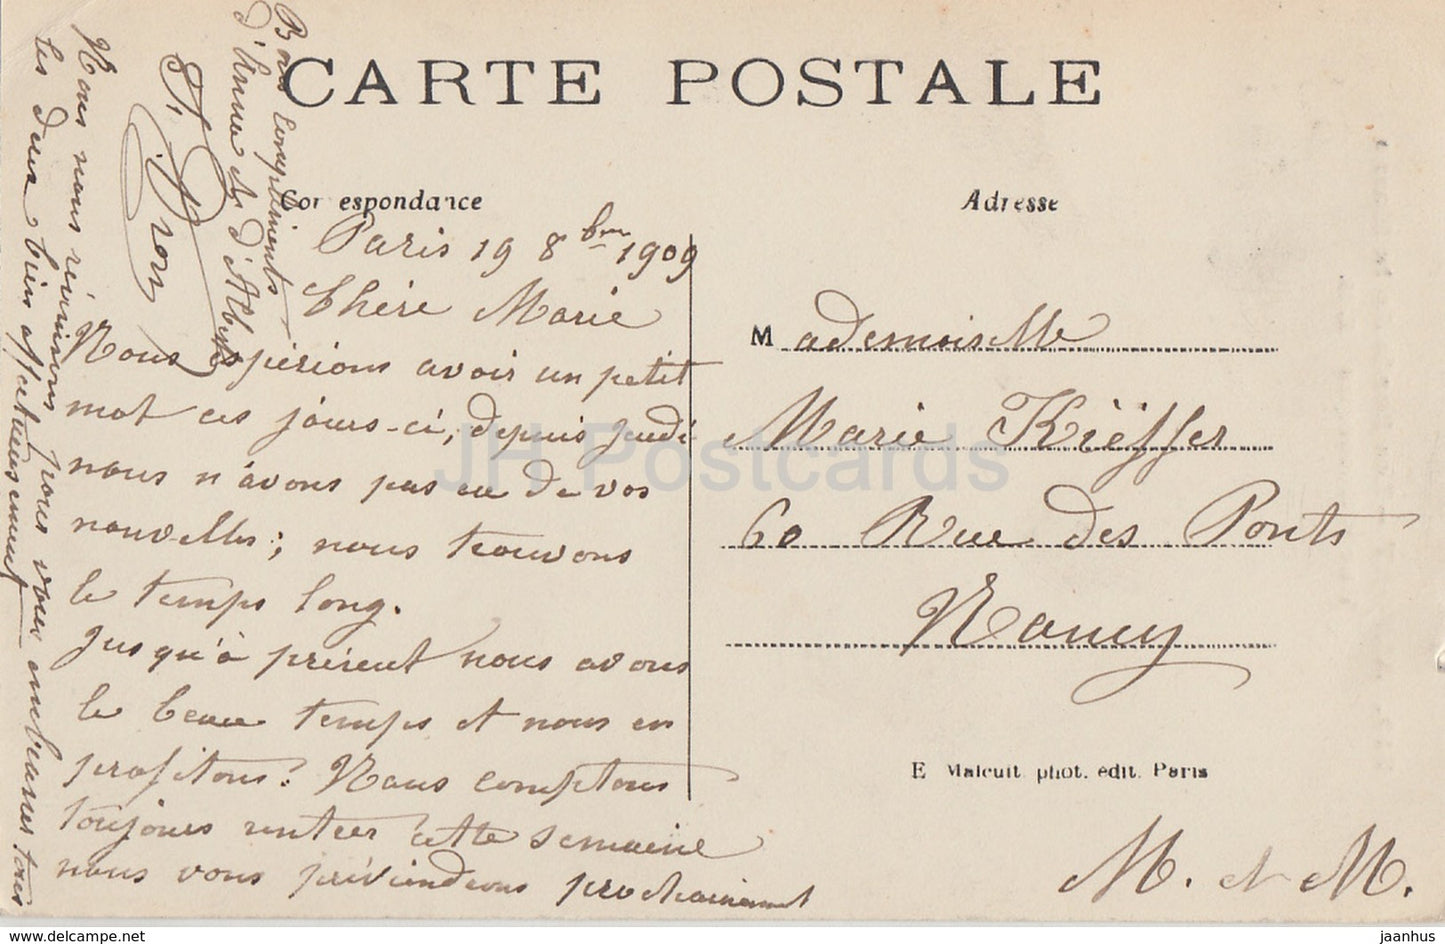 CARTE POSTALE
Correspondance
Adresse
Paris 19 8bre 1909
Chère Marie
Nous éspérions avoir un petit
mot ces jours-ci, depuis Jeudi
nous n'avons pas eu de vos
nouvelles; nous trouvons
le temps long.
Jusqu'à présent nous avons
le beau temps et nous en
profitons! Nous comptons
toujours rentrer cette semaine
nous vous préviendrons prochainement
Nous nous réunissons pour vous embrasser tous
les deux bien affectueusement
Bons Compliments
d'Anna et d'Albert
Mademoiselle
Marie Kiëffer
60 Rue des Ponts
Nancy
E Malcuit phot. édit. Paris
M. et M.
JH Postcards
www.delcampe.net
jaanhus